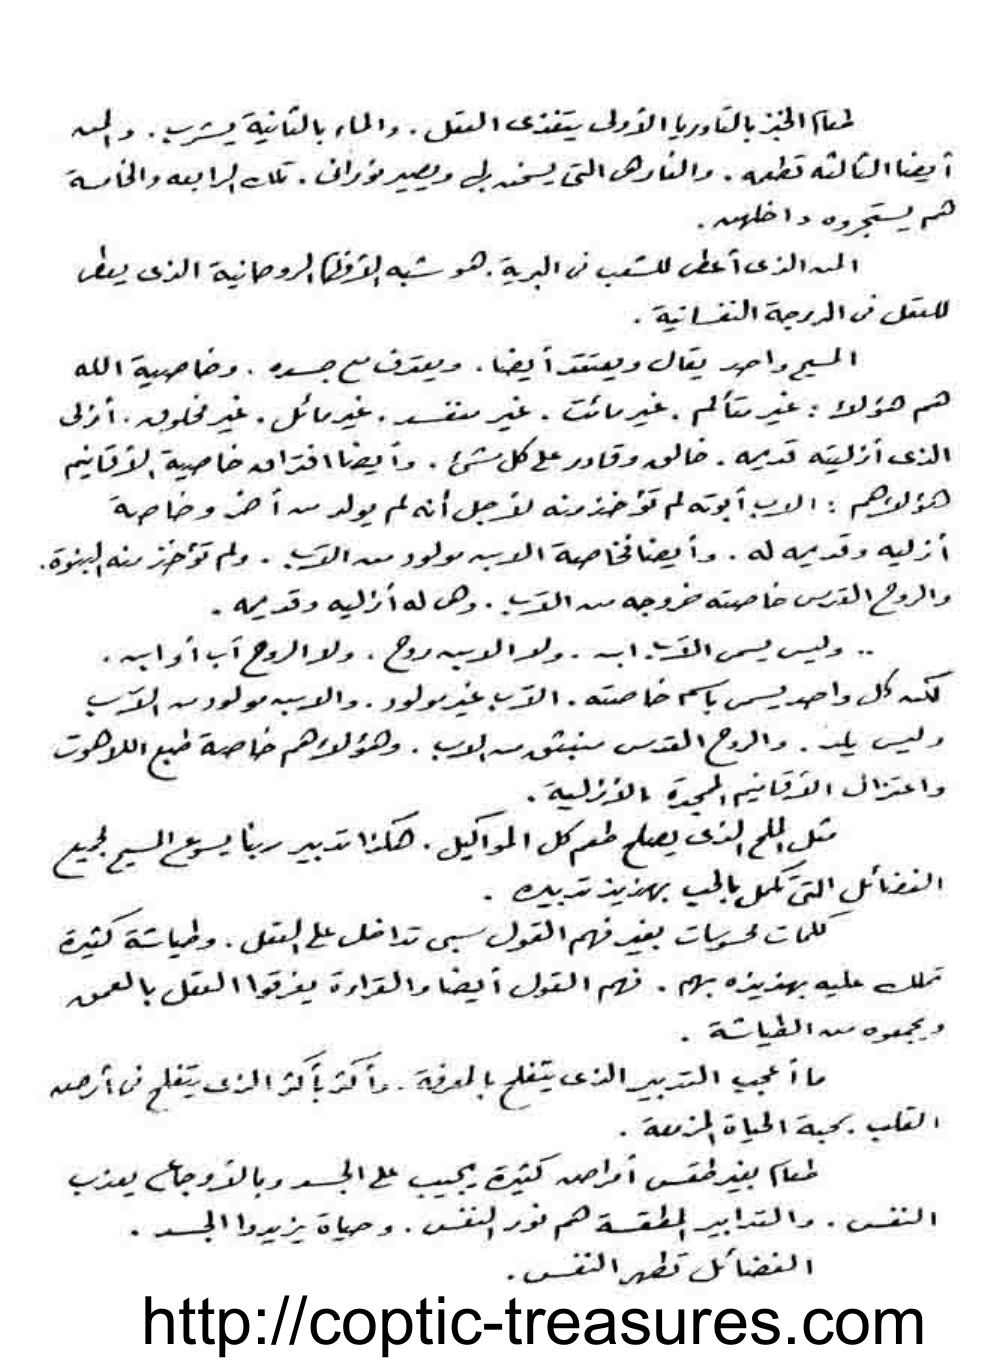 طعام الخبز بالتاوريا الأولى يتغذى العقل . والماء بالثانية يشرب . والمن
أيضا الثالثة تطعمه . والنار هى التى يسخن بها ويصير نورانى . تلك الرابعه والخامسة
هم يستجروه داخلهن .
المن الذى أعطى للشعب فى البرية . هو شبه الأفكار الروحانية الذى يعطى
للعقل فى الدرجة النفسانية .
المسيح واحد يقال ويعتقد أيضا . ويعترف مع جسده . وخاصية الله
هم هؤلاء : غير متألم . غير مائت . غير منفسد . غير مائل . غير مخلوق . أزلى
الذى أزليته قديمه . خالق وقادر على كل شئ . وأيضا افتراق خاصية الأقانيم
هؤلاء هم : الاب أبوته لم تؤخذ منه لأجل أنه لم يولد من أخر وخاصة
أزليه وقديمه له . وأيضا فخاصة الابن مولود من الآب . ولم تؤخذ منه البنوة .
والروح القدس خاصته خروجه من الآب . وهى له أزليه وقديمه .
.. وليس يسمى الآب ابن . ولا الابن روح . ولا الروح آب أو ابن .
لكن كل واحد يسمى باسم خاصته . الآب غير مولود . والابن مولود من الآب
وليس يلد . والروح القدس منبثق من الاب . وهؤلاء هم خاصة طبع اللاهوت
واعتزال الأقانيم الممجدة بالأزلية .
مثل الملح الذى يصلح طعم كل المواكيل . هكذا تدبير ربنا يسوع المسيح لجميع
الفضائل التى تكمل بالحب بهذيذ تدبيره .
كلمات محسوبات بغير فهم القول سبى تداخل على العقل . وطياشة كثيرة
تملك عليه بهذيذه بهم . فهم القول أيضا والقراءة يغرقوا العقل بالعمق
ويجمعوه من الطياشة .
ما أعجب التدبير الذى يتفلح بالمعرفة . وأكثر بأكثر الذى يتفلح فى أرض
القلب بمحبة الحياة المزمعة .
طعام بغير طقس أمراض كثيرة يجيب على الجسد وبالأوجاع يعذب
النفس . والتدابير المطقسة هم نور النفس . وحياة يزيدوا الجسد .
الفضائل تطهر النفس .
http://coptic-treasures.com